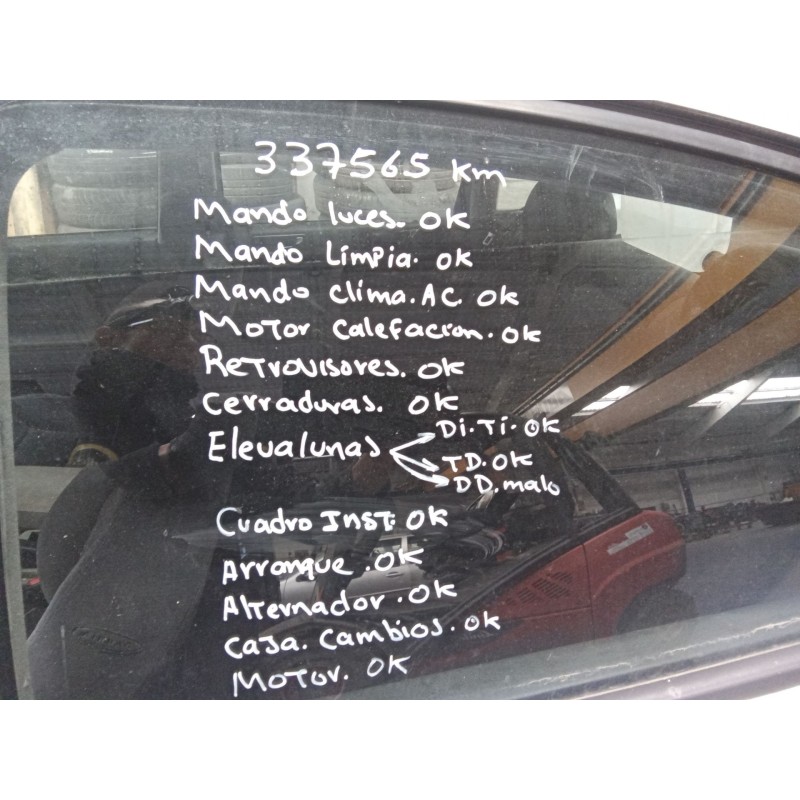 337565 Km
Mando luces. OK
Mando Limpia. OK
Mando Clima. AC. OK
Motor Calefacion. OK
Retrovisores. OK
Cerraduras. OK
Elevalunas
Di. Ti. OK
TD. OK
DD. malo
Cuadro Inst. OK
Arranque. OK
Alternador. OK
Caja. Cambios. OK
Motor. OK